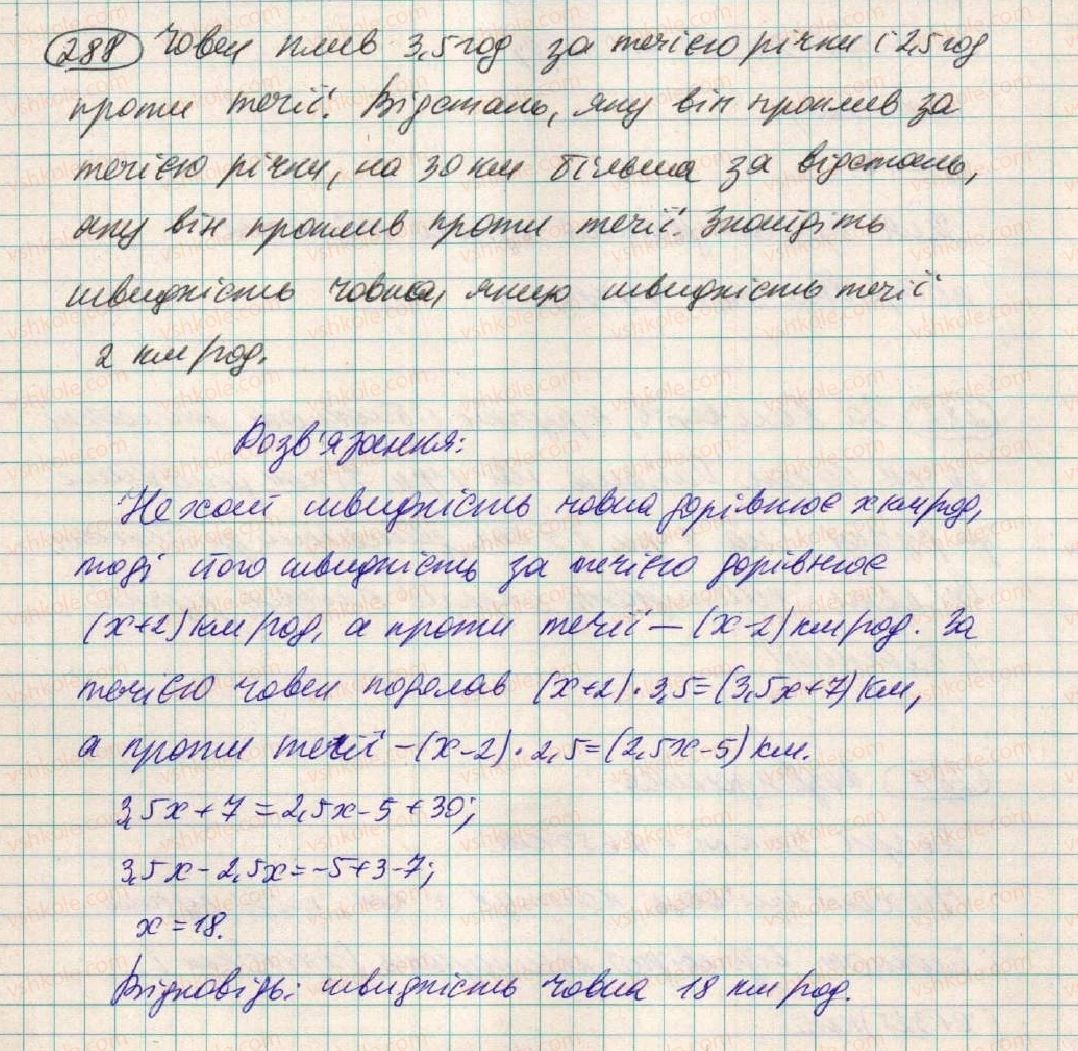 288 Човен плив 3,5 год за течією річки і 2,5 год
проти течії. Відстань, яку він проплив за
течією річки, на 30 км більша за відстань,
яку він проплив проти течії. Знайдіть
швидкість човна, якщо швидкість течії
2 км/год.
Розв'язання:
Нехай швидкість човна дорівнює x км/год,
тоді його швидкість за течією дорівнює
(x+2) км/год, а проти течії – (x-2) км/год. За
течією човен подолав (x+2)·3,5=(3,5x+7) км,
а проти течії – (x-2)·2,5=(2,5x-5) км.
3,5x+7=2,5x-5+30;
3,5x-2,5x=-5+3-7;
x=18.
Відповідь: швидкість човна 18 км/год.